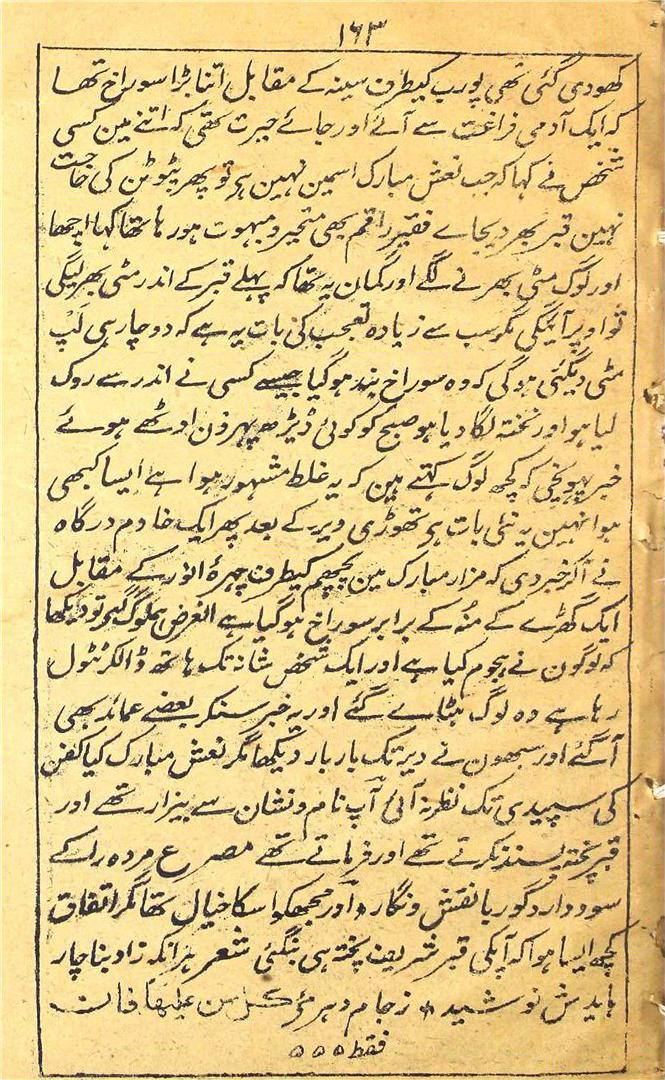 ۱۶۳
کھودی گئی تھی پورب کیطرف سینہ کے مقابل اتنا بڑا سوراخ تھا
کہ ایک آدمی فراغت سے آئے اور جائے حیرت تھی کہ اتنے مین کسی
شخص نے کہا کہ جب نعش مبارک اسمین نہین ہے تو پھر پٹوٹن کی حاجت
نہین قبر بھر دیجاے فقیر راقم بھی متحیر و مبہوت ہو رہا تھا کہا اچھا
اور لوگ مٹی بھرنے لگے اور گمان یہ تھا کہ پہلے قبر کے اندر مٹی بھر لیگی
تو اوپر آئیگی مگر سب سے زیادہ تعجب کی بات یہ ہے کہ دو چار ہی لَپ
مٹی دیگئی ہوگی کہ وہ سوراخ بند ہو گیا جیسے کسی نے اندر سے روک
لیا ہو اور تختہ لگا دیا ہو صبح کو کوئی ڈیڑھ پہر دن اوٹھے ہوئے
خبر پہونچی کہ کچھ لوگ کہتے ہین کہ یہ غلط مشہور ہوا ہے ایسا کبھی
ہوا نہین یہ نئی بات ہے تھوڑی دیر کے بعد پھر ایک خادم درگاہ
نے آکر خبر دی کہ مزار مبارک مین پچھم کیطرف چہرۂ انور کے مقابل
ایک گھڑے کے منُہ کے برابر سوراخ ہو گیا ہے الغرض ہملوگ گئے تو دیکھا
کہ لوگون نے ہجوم کیا ہے اور ایک شخص شانہ تک ہاتھ ڈالکر ٹٹول
رہا ہے وہ لوگ ہٹاے گئے اور یہ خبر سنکر بعضے عمائد بھی
آگئے اور سبھون نے دیر تک بار بار دیکھا مگر نعش مبارک کیا کفن
کی سپیدی تک نظر نہ آئی آپ نام و نشان سے بیزار تھے اور
قبر پختہ پسند نکرتے تھے اور فرماتے تھے مصرع مردہ را کے
سود دارد گور با نقش و نگار ٭ اور مجھکو اسکا خیال تھا مگر اتفاق
کچھ ایسا ہوا کہ آپکی قبر شریف پختہ ہی بنگئی شعر ہر انکہ زاد بنا چار
بایدش نوشید ٭ ز جام دہر مئے کل من علیہا فان
فقط ٥ ٥ ٥